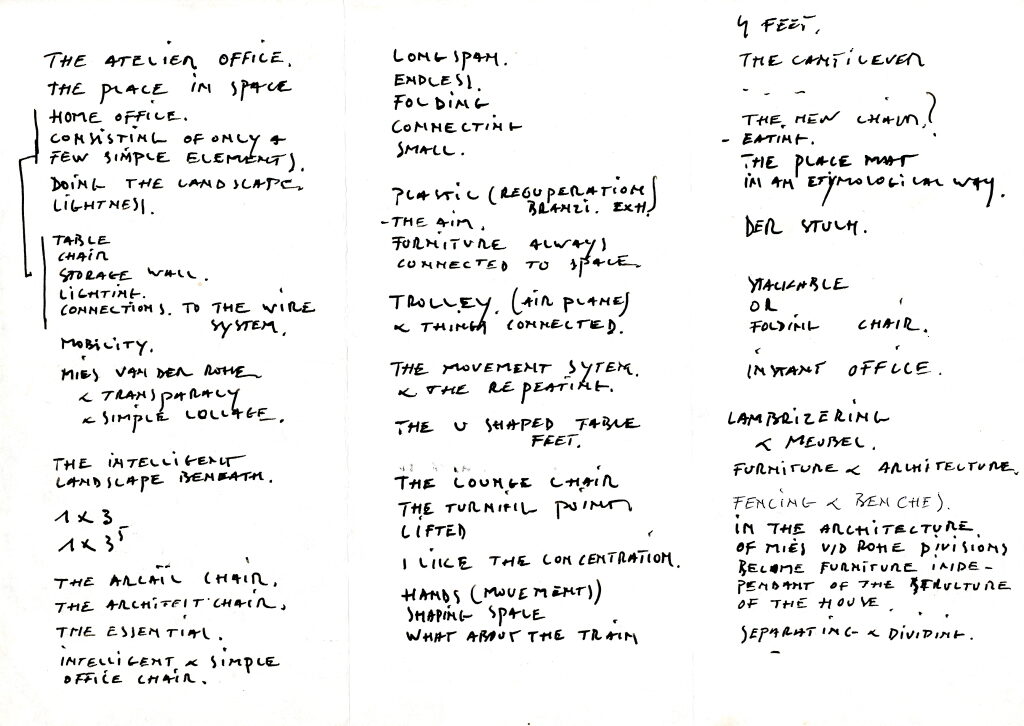 THE ATELIER OFFICE.
THE PLACE IN SPACE
HOME OFFICE.
CONSISTING OF ONLY A
FEW SIMPLE ELEMENTS.
DOING THE LANDSCAPE.
LIGHTNESS.
TABLE
CHAIR
STORAGE WALL.
LIGHTING.
CONNECTIONS. TO THE WIRE
SYSTEM.
MOBILITY.
MIES VAN DER ROHE
& TRANSPARACY
& SIMPLE COLLAGE.
THE INTELLIGENT
LANDSCAPE BENEATH.
1 X 3
1 X 3 5
THE CHAIR.
THE ARCHITECT CHAIR.
THE ESSENTIAL.
INTELLIGENT & SIMPLE
OFFICE CHAIR.
LONG SPAN.
ENDLESS.
FOLDING
CONNECTING
SMALL.
PLASTIC (REGUPERATION)
BRANZI. EXH.
- THE AIM.
FURNITURE ALWAYS
CONNECTED TO SPACE.
TROLLEY. (AIR PLANE)
& THINGS CONNECTED.
THE MOVEMENT SYTEM.
& THE REPEATING.
THE U SHAPED TABLE
FEET.
THE LOUNGE CHAIR
THE TURNING POINTS
LIFTED
I LIKE THE CONCENTRATION.
HANDS (MOVEMENTS)
SHAPING SPACE
WHAT ABOUT THE TRAIN
4 FEET.
THE CANTILEVER
- - -
THE NEW CHAIR?
- EATING.
THE PLACE MAT
IN AN ETYMOLOGICAL WAY.
DER STUHL.
STACKABLE
OR
FOLDING CHAIR.
INSTANT OFFICE.
LAMBRIZERING
& MEUBEL.
FURNITURE & ARCHITECTURE.
FENCING & BENCHES.
IN THE ARCHITECTURE
OF MIES V/D ROHE DIVISIONS
BECOME FURNITURE INDE-
PENDANT OF THE STRUCTURE
OF THE HOUSE.
SEPARATING & DIVIDING.
-